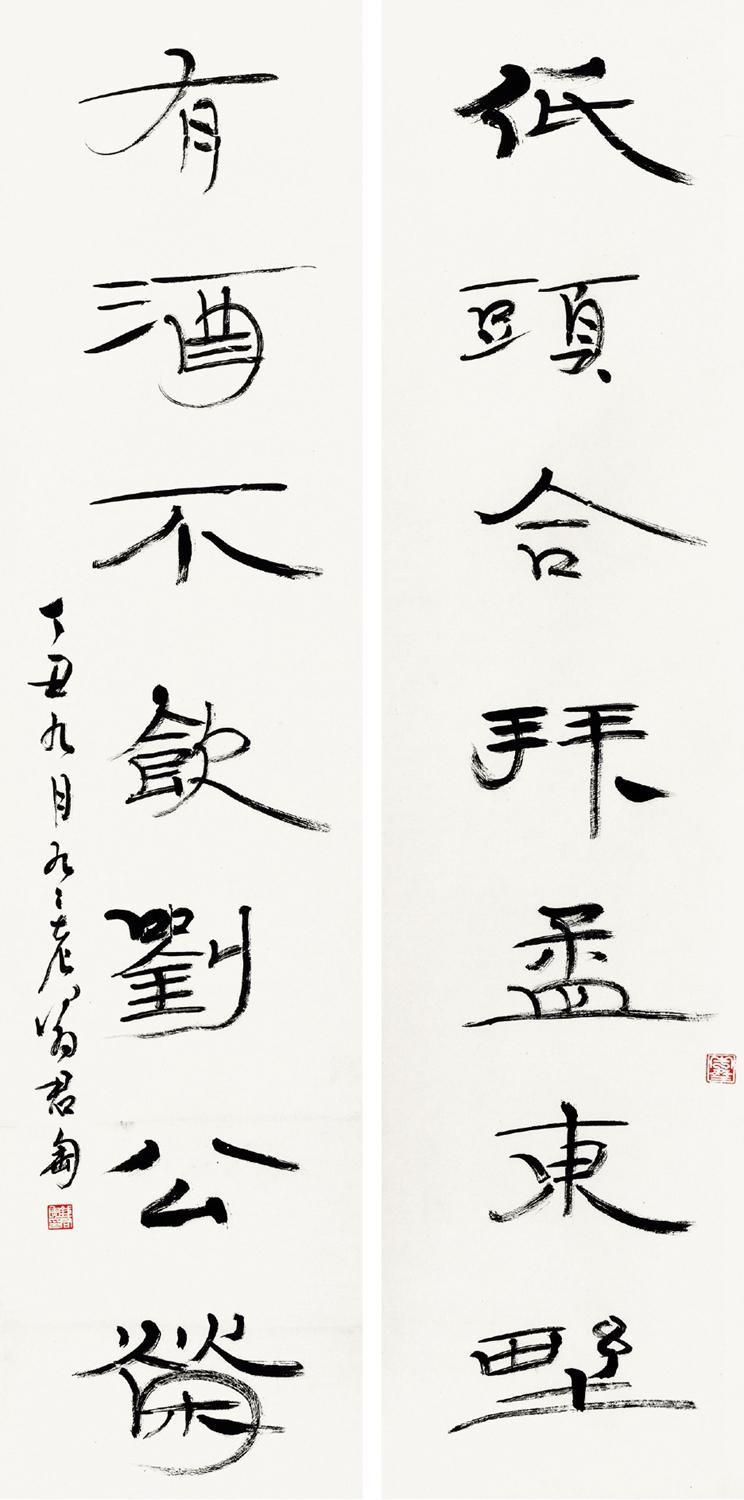 低頭合拜孟東野
有酒不飲劉公榮
丁丑九月九二老翁君匋